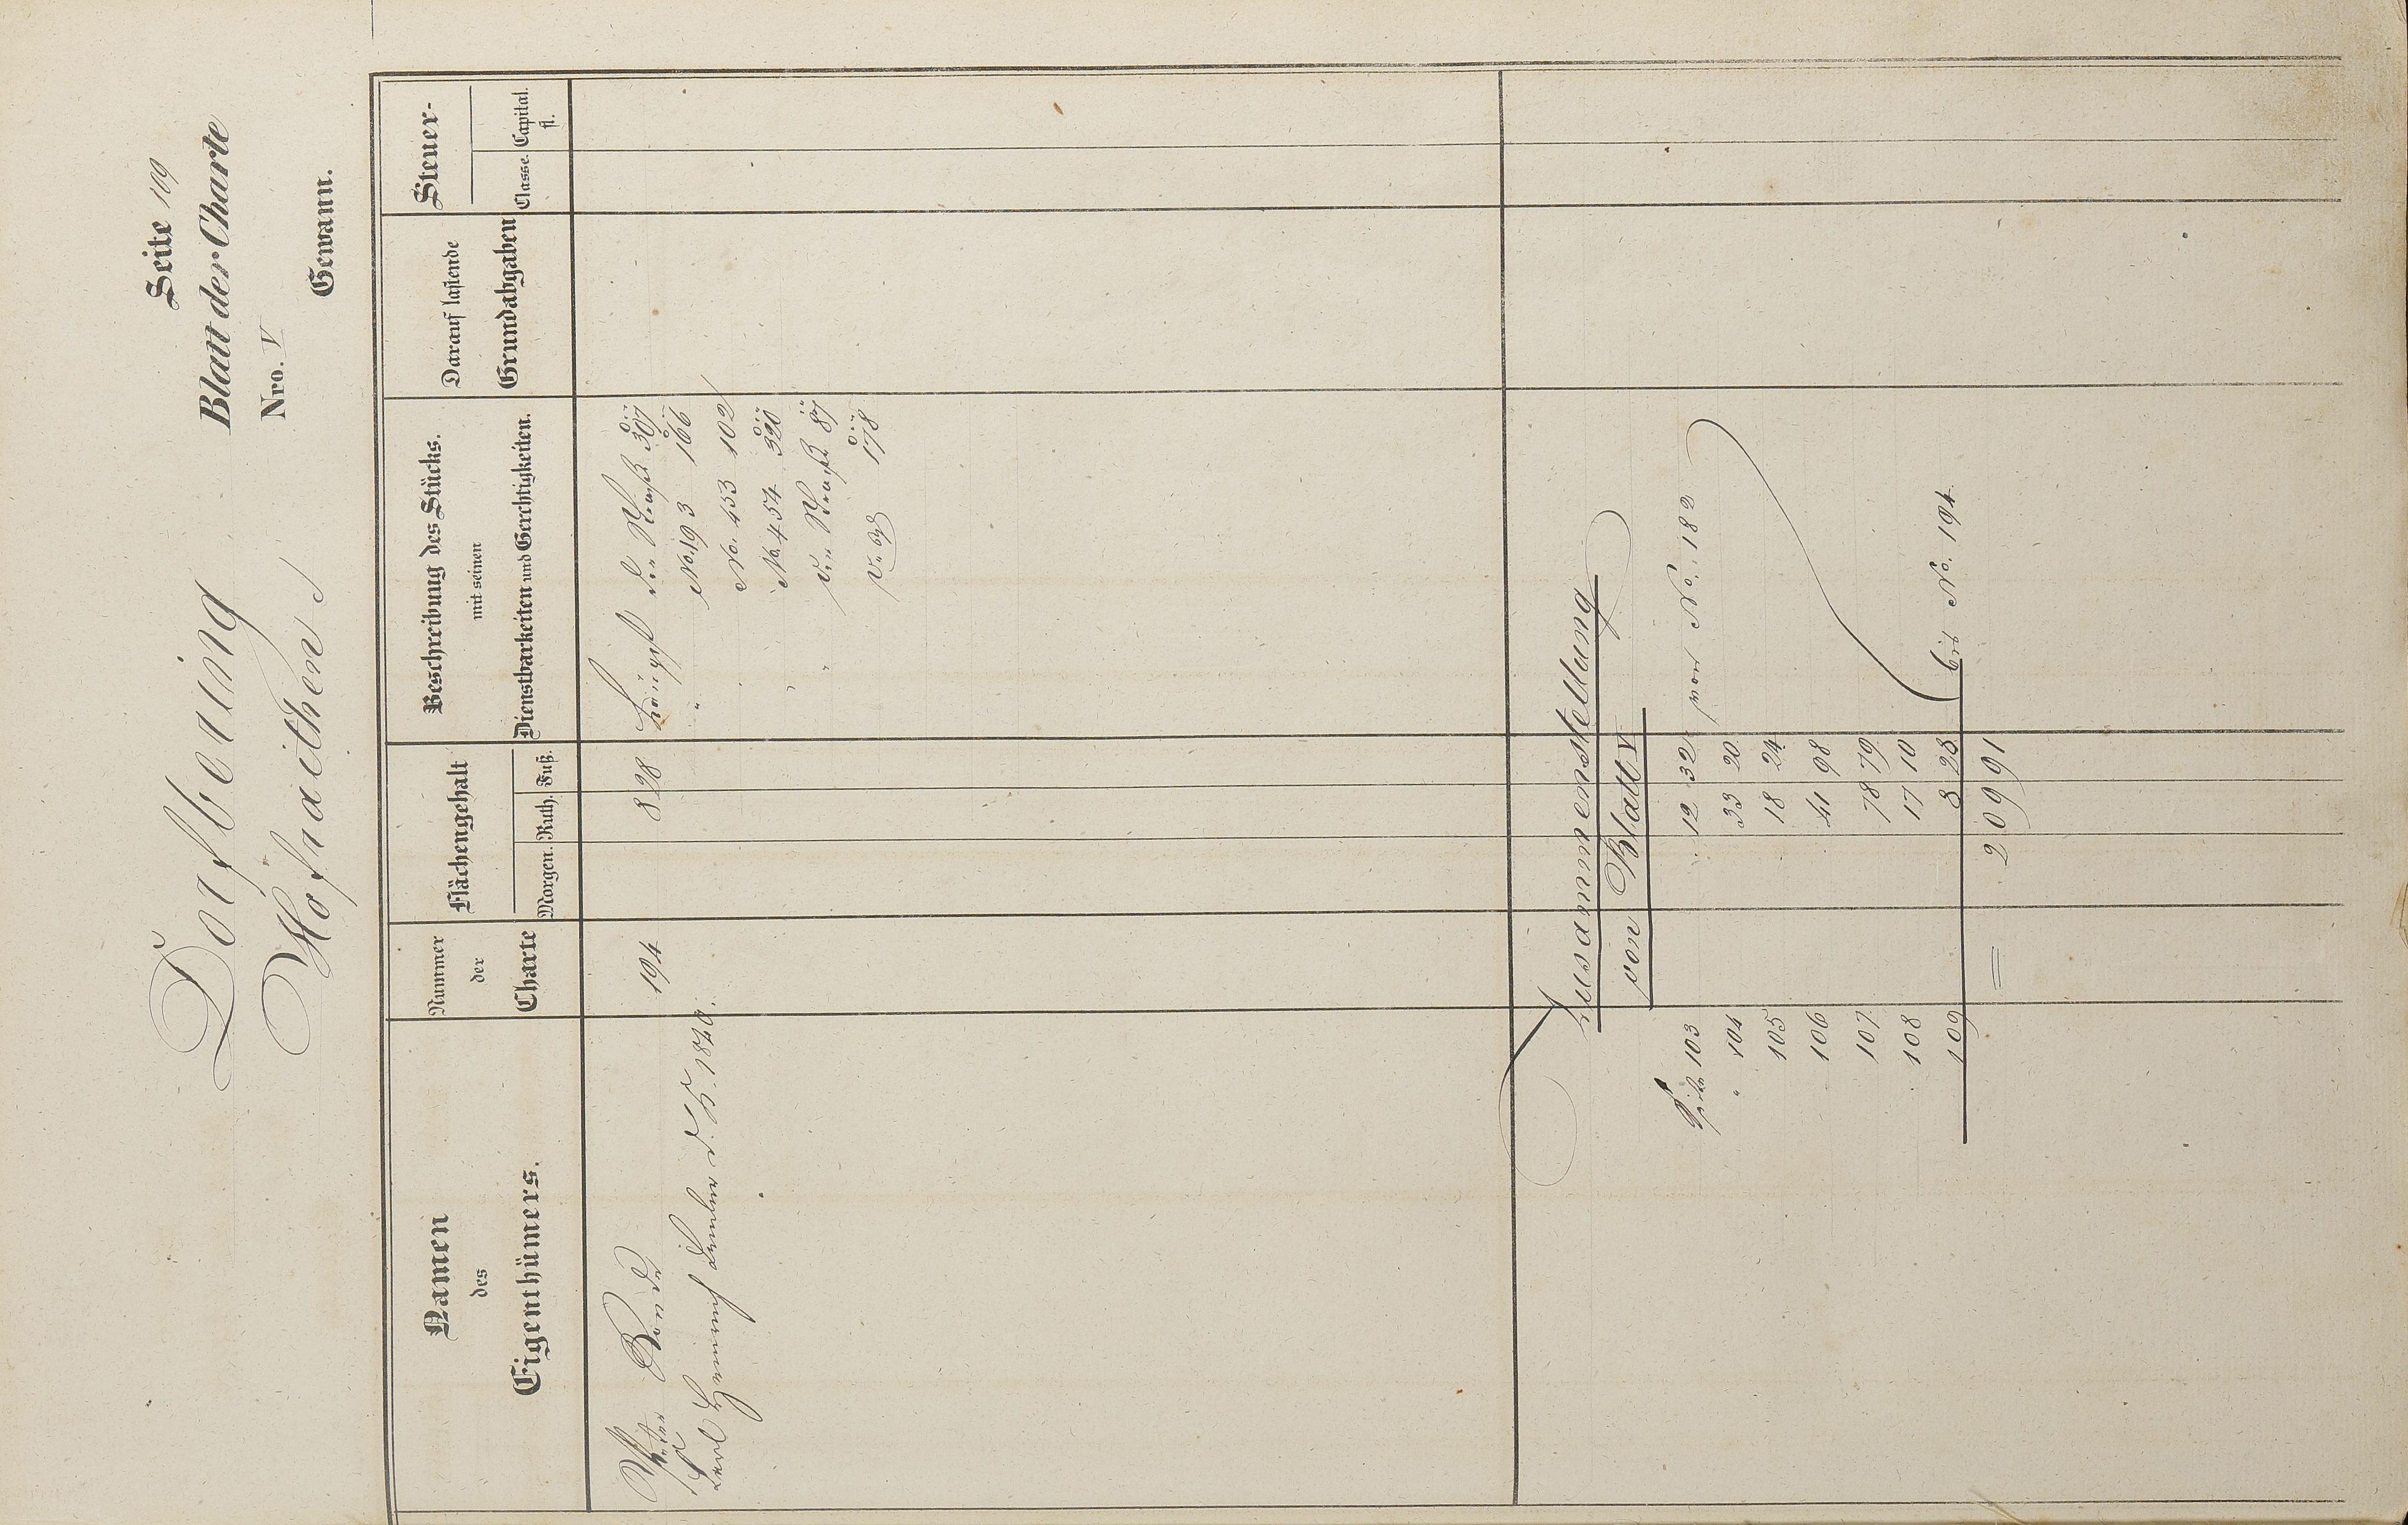 Seite 109
Dorfbering
Blatt der Charte
Hofraithen
Nro. V
Gewann.
Namen des Eigenthümers.
Nummer der Charte
Flächengehalt
Morgen. Ruth. Fuß.
Beschreibung des Stücks.
mit seinen
Dienstbarkeiten und Gerechtigkeiten.
Darauf lastende
Grundabgaben
Steuer-
Classe. Capital. fl.
194 8 28 307
Heinrich d. K. 1840. No. 193 166
No. 453 102
No. 454 320
87
178
Zusammenstellung
von Blatt V
Seite 103 12 32 von No. 182
" 104 33 20
105 18 24
106 41 98
107 78 79
108 17 10
109 8 28 bis No. 194
= 2 09 91